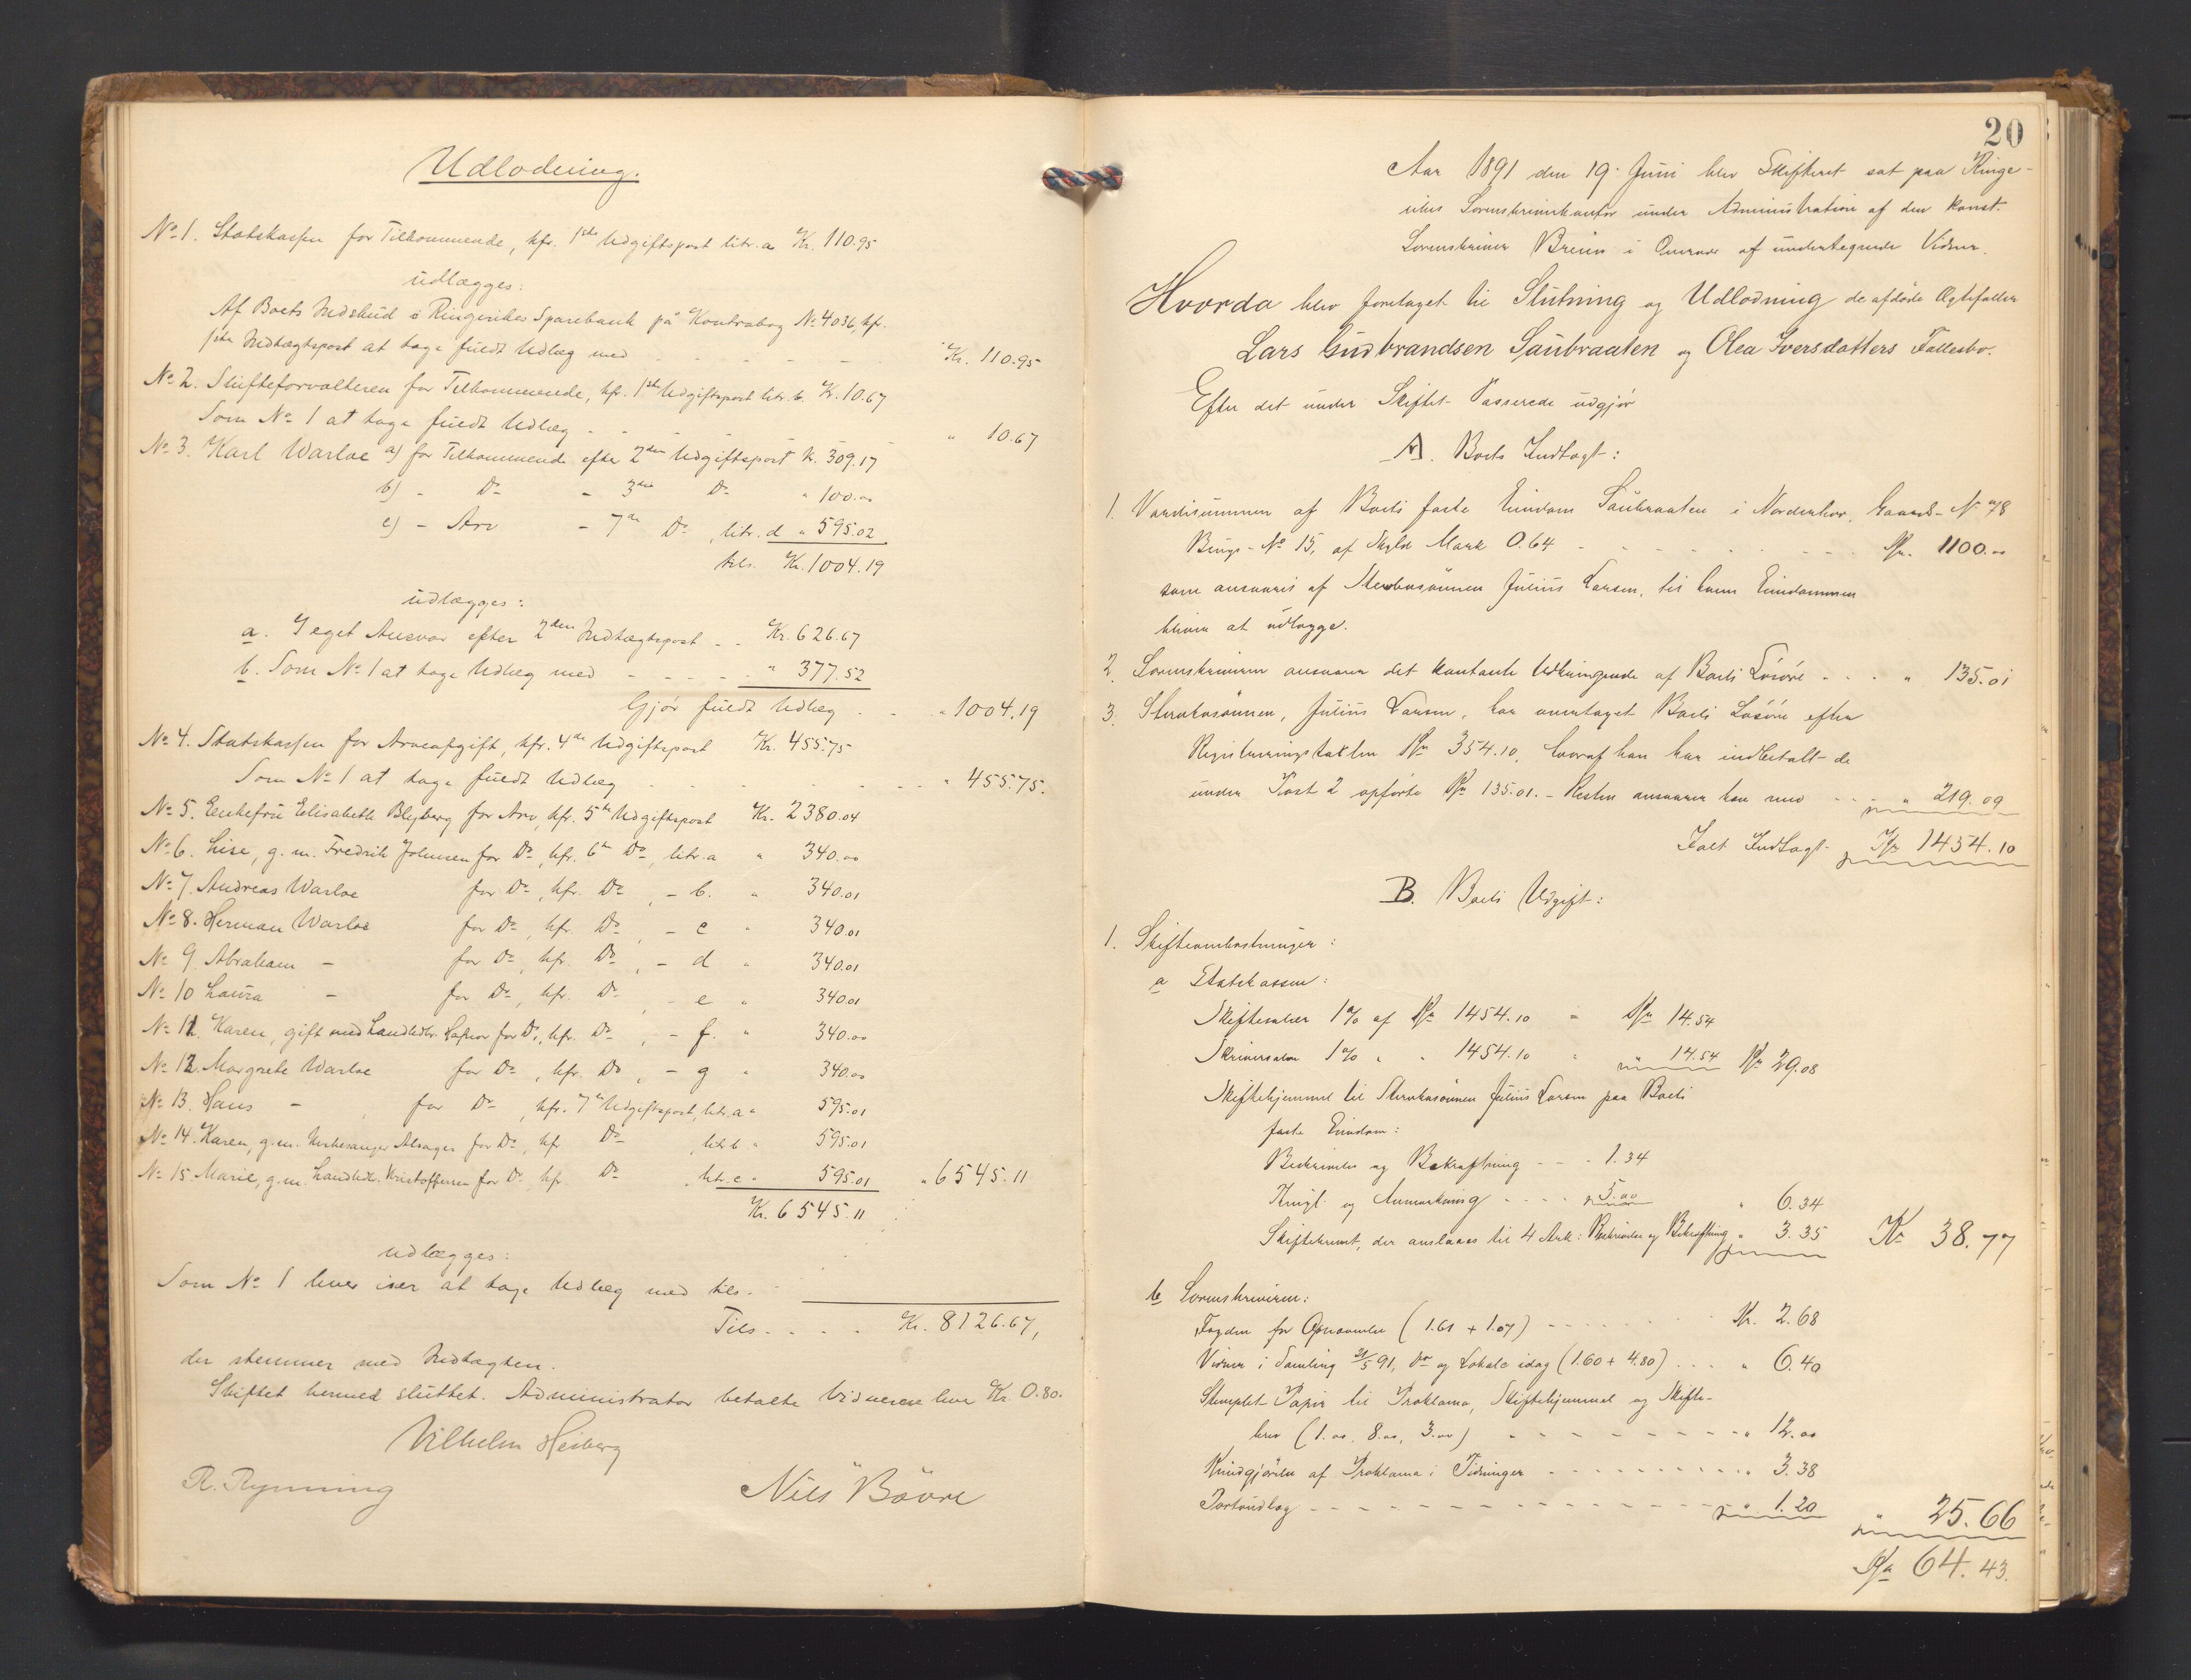 Udlodning.
No 1. Statskassen for Tilkommende, kfr. 1ste Udgiftspost litr. a Kr. 110.95
udlægges:
Af Boets Indskud i Ringerikes Sparebank på Kontrabog No 4036, kfr.
1ste Indtægtspost at tage fuldt Udlæg med - - - - Kr. 110.95
No 2. Skifteforvalteren for Tilkommende, kfr. 1ste Udgiftspost litr. b. Kr. 10.67
Som No 1 at tage fuldt Udlæg - - - - " 10.67
No 3. Karl Warloe a) for Tilkommende efter 2den Udgiftspost K. 309.17
b) - Do - 3die Do " 100.00
c) - Arv - 7de Do, litr. d " 595.02
tils. Kr. 1004.19
udlægges:
a. I eget Ansvar efter 2den Indtægtspost - - Kr. 626.67
b. Som No 1 at tage Udlæg med - - - - " 377.52
Gjør fuldt Udlæg - - " 1004.19
No 4. Statskassen for Arveafgift, kfr. 4de Udgiftspost Kr. 455.75
Som No 1 at tage fuldt Udlæg - - - - " 455.75.
No 5. Enkefru Elisabeth Blyberg for Arv, kfr. 5te Udgiftspost Kr. 2380.04
No 6. Lise, g. m. Fredrik Johnsen for Do, kfr. 6te Do, litr. a " 340.00
No 7. Andreas Warloe for Do, kfr. Do, - b. " 340.01
No 8. Herman Warloe for Do, kfr. Do, - c " 340.01
No 9. Abraham - for Do, kfr. Do, - d " 340.01
No 10 Laura - for Do, kfr. Do - e " 340.01
No 11. Karen, gift med Landhdlr. for Do, kfr. Do, - f. " 340.00
No 12. Margrete Warloe for Do, kfr. Do, - g " 340.00
No 13. Hans - for Do, kfr. 7de Udgiftspost, litr. a " 595.01
No 14. Karen, g. m. Kirkesanger Alsager for Do, kfr Do litr. b " 595.01
No 15. Marie, g. m. Landhdl. Kristoffersen for Do, kfr. Do litr. c " 595.01 " 6545.11
Kr. 6545.11
udlægges:
Som No 1 hver især at tage Udlæg med tils. -
Tils. - - - Kr. 8126.67,
der stemmer med Indtægten.
Skiftet hermed sluttet. Administrator betalte Vidnerne hver Kr. 0.80.
Vilhelm Heiberg
R. Rynning Nils Bövre
20
Aar 1891 den 19. Juni blev Skifteret sat paa Ringe-
rikes Sorenskriverkontor under Administration af den konst.
Sorenskriver Breien i Overvær af undertegnede Vidner.
Hvorda blev foretaget til Slutning og Udlodning de afdøde Ægtefæller
Lars Gudbrandsen Saubraaten og Olea Iversdatters Fællesbo.
Efter det under Skiftet Passerede udgjør
A. Boets Indtægt:
1. Værdisummen af Boets faste Eiendom Saubraaten i Norderhov, Gaards-No 78
Brugs-No 15, af Skyld Mark 0.64 - - - - Kr. 1100.00
som ansvares af Stervbosønnen Julius Larsen, til hvem Eiendommen
bliver at udlægge.
2. Sorenskriveren ansvarer det kontante Udbringende af Boets Løsøre - - - " 135.01
3. Stervbosønnen, Julius Larsen, har overtaget Boets Løsøre efter
Registreringstaksten Kr 354.10, hvoraf han har indbetalt de
under Post 2 opførte Kr 135.01. - Resten ansvarer han med - - - " 219.09
Ialt Indtægt Kr 1454.10
B. Boets Udgift:
1. Skifteomkostninger:
a Statskassen:
Skiftesaler 1% af Kr 1454.10 = Kr 14.54
Skriversaler 1% " " 1454.10 = " 14.54 Kr 29.08
Skiftehjemmel til Stervbosønnen Julius Larsen paa Boets
faste Eiendom:
Beskrivelse og Bekræftning - - - 1.34
Thingl. og Anmærkning - - - - 5.00 " 6.34
Skiftebrevet, der anslaaes til 4 Ark: Beskrivelse og Bekræftning " 3.35 Kr 38.77
b Sorenskriveren:
Fogden for Opnævnelse (1.61 + 1.07) - - - Kr. 2.68
Vidner i Samling 21/5 91, Do og Lokale idag (1.60 + 4.80) - - - " 6.40
Stemplet Papir til Proklama, Skiftehjemmel og Skifte-
brev (1.00, 8.00, 3.00) - - - - " 12.00
Kundgjørelse af Proklama i Tidninger - - - - " 3.38
Portoudlæg - - - - " 1.20 " 25.66
Kr 64.43.